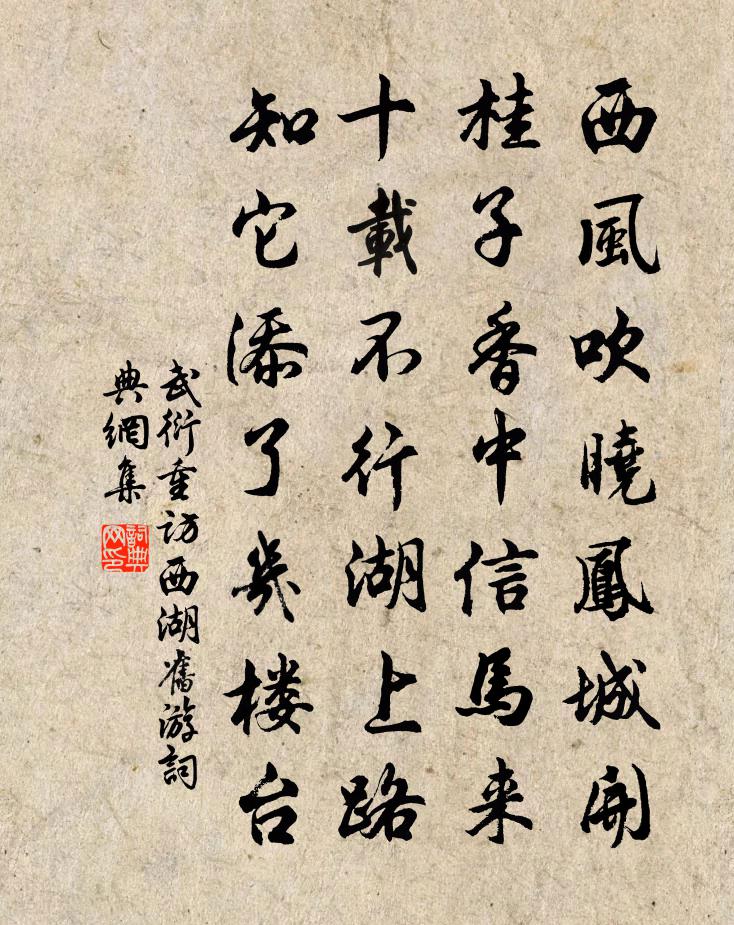 西風吹曉鳳城開
桂子香中信馬来
十載不行湖上路
知它添了幾楼台
武衍重访西湖舊游詞
典網集
詞典
网印